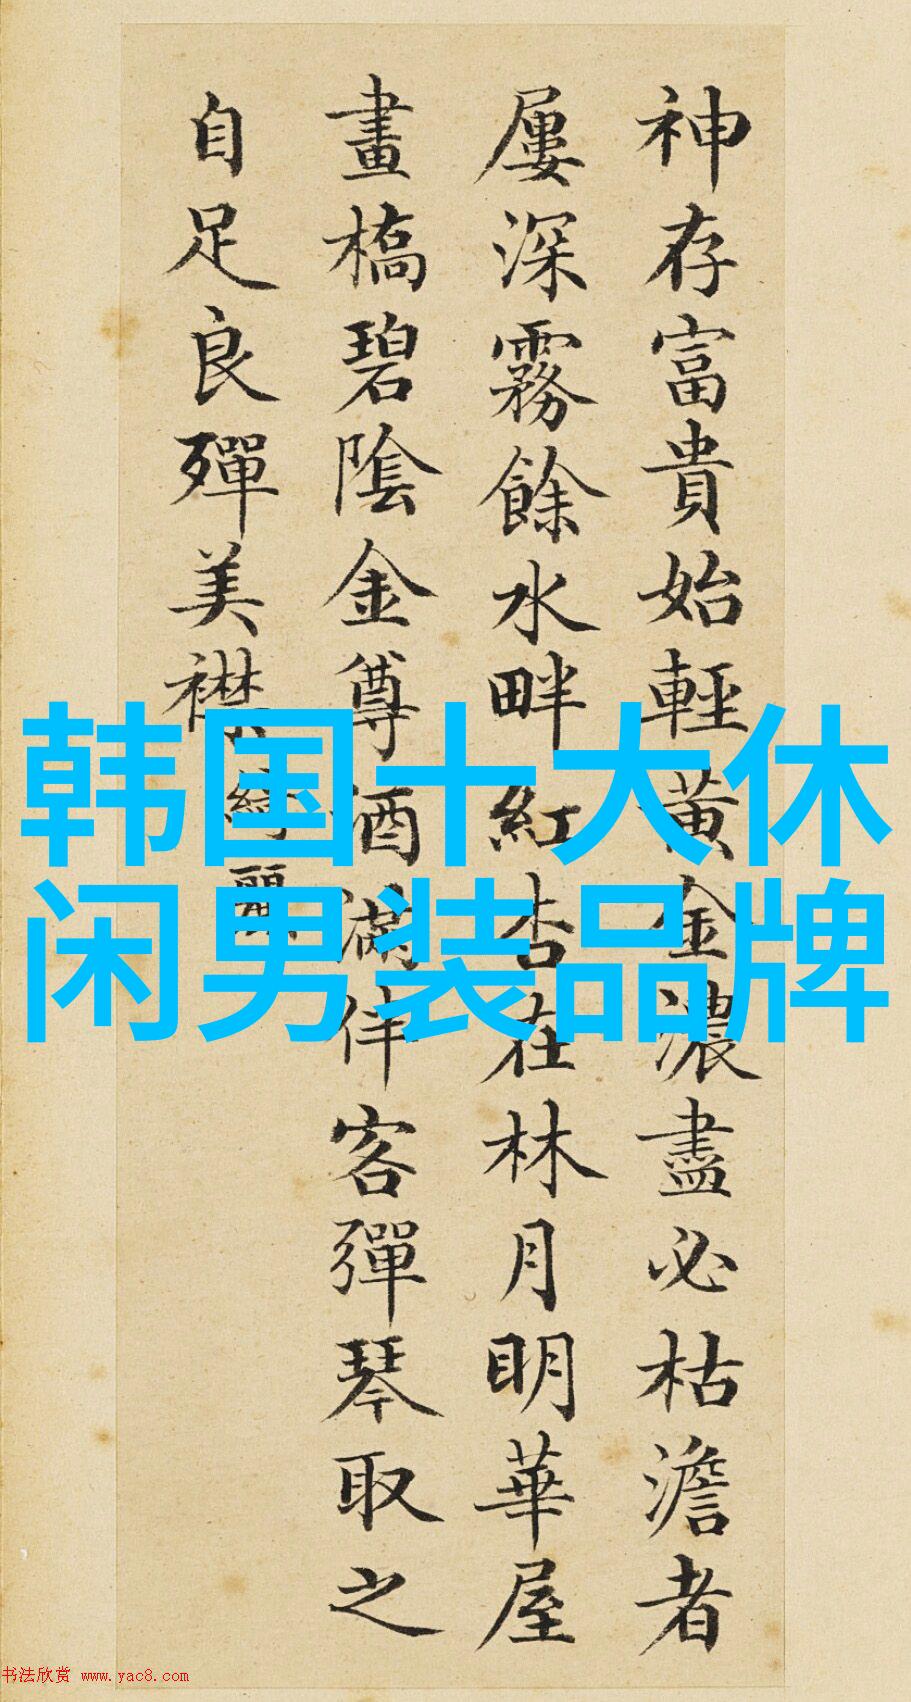 神存富貴始輕黄金濃盡必枯澹者
屢深霧餘水畔紅杏在林月明華屋
畫橋碧陰金尊酒滿伴客彈琴取之
自足良殫美襟綺麗
韩国十大休
闲男装品牌
书法欣赏 www.yac8.com